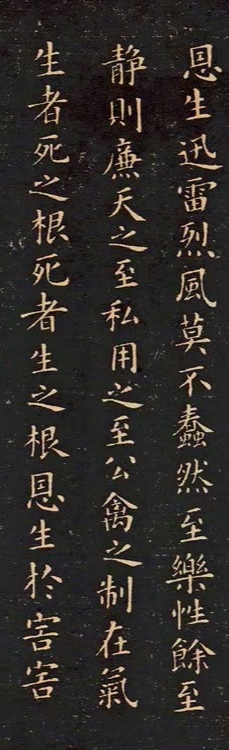 恩生迅雷烈風莫不蠢然至樂性餘至
靜則廉天之至私用之至公禽之制在氣
生者死之根死者生之根恩生於害害